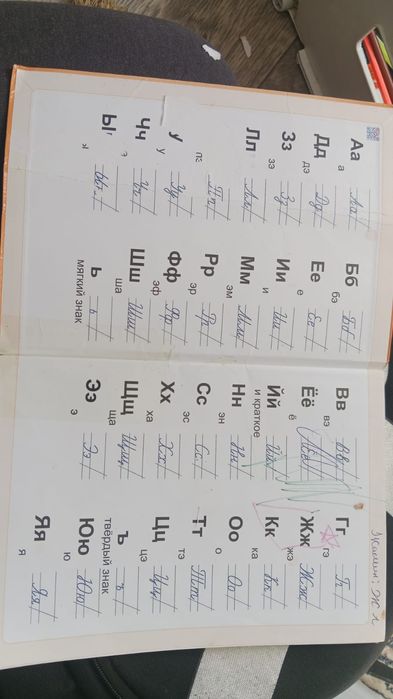 Аа Аа Бб Бб Вв Вв Гг Гг
а бэ вэ гэ
Дд Дд Ее Ее Ёё Ёё Жж Жж
дэ е ё жэ
Зз Зз Ии Ии Йй Йй Кк Кк
зэ и и краткое ка
Лл Лл Мм Мм Нн Нн Оо Оо
эм эн о
Пп Рр Рр Сс Сс Тт Тт
пэ эр эс тэ
Уу Фф Фф Хх Хх Цц Цц
у эф ха цэ
Чч Чч Шш Шш Щщ Щщ Ъ ъ
ша ща твёрдый знак
Ы ы Ь ь Ээ Ээ Юю Юю
мягкий знак э ю
Яя Яя
я